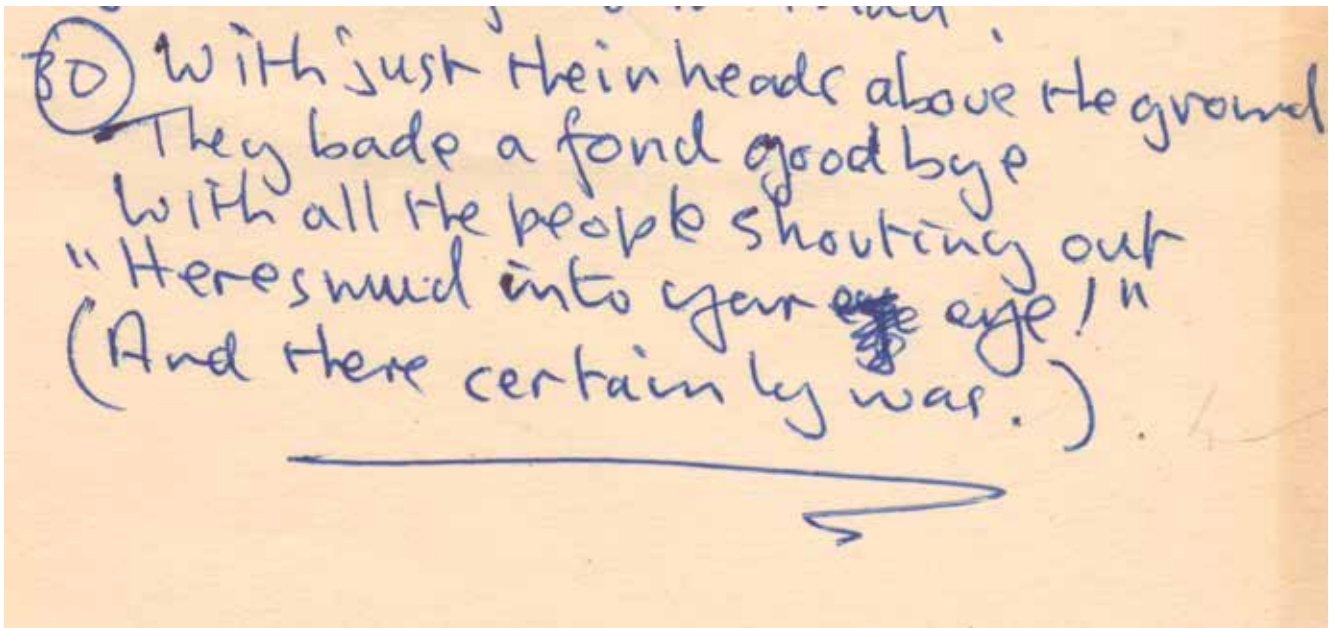 30 With just their heads above the ground
They bade a fond goodbye
With all the people shouting out
"Heres mud into your eye!"
(And there certainly was.).